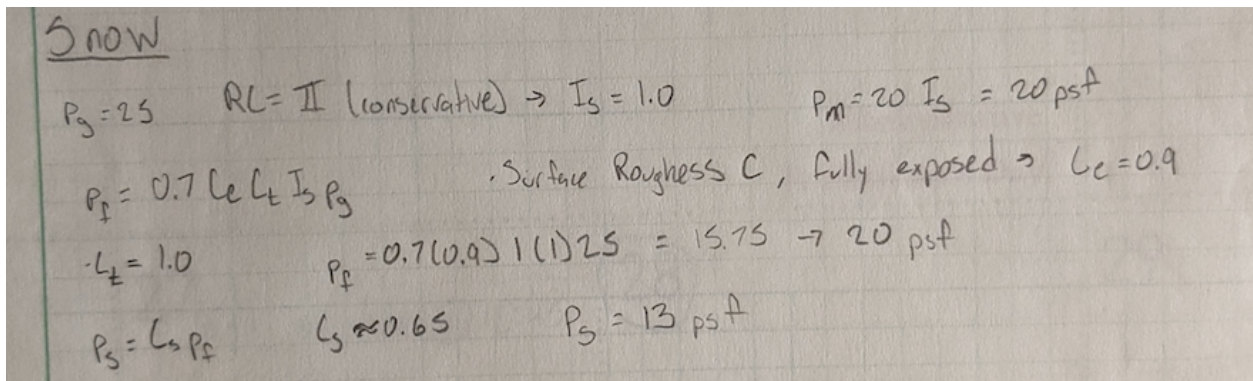 Snow
Pg = 25 RC = II (conservative) → Is = 1.0 Pm = 20 Is = 20 psf
Pf = 0.7 Ce Ct Is Pg · Surface Roughess C, fully exposed → Ce = 0.9
· Ct = 1.0 Pf = 0.7(0.9) 1 (1) 25 = 15.75 → 20 psf
Ps = Cs Pf Cs ≈ 0.65 Ps = 13 psf